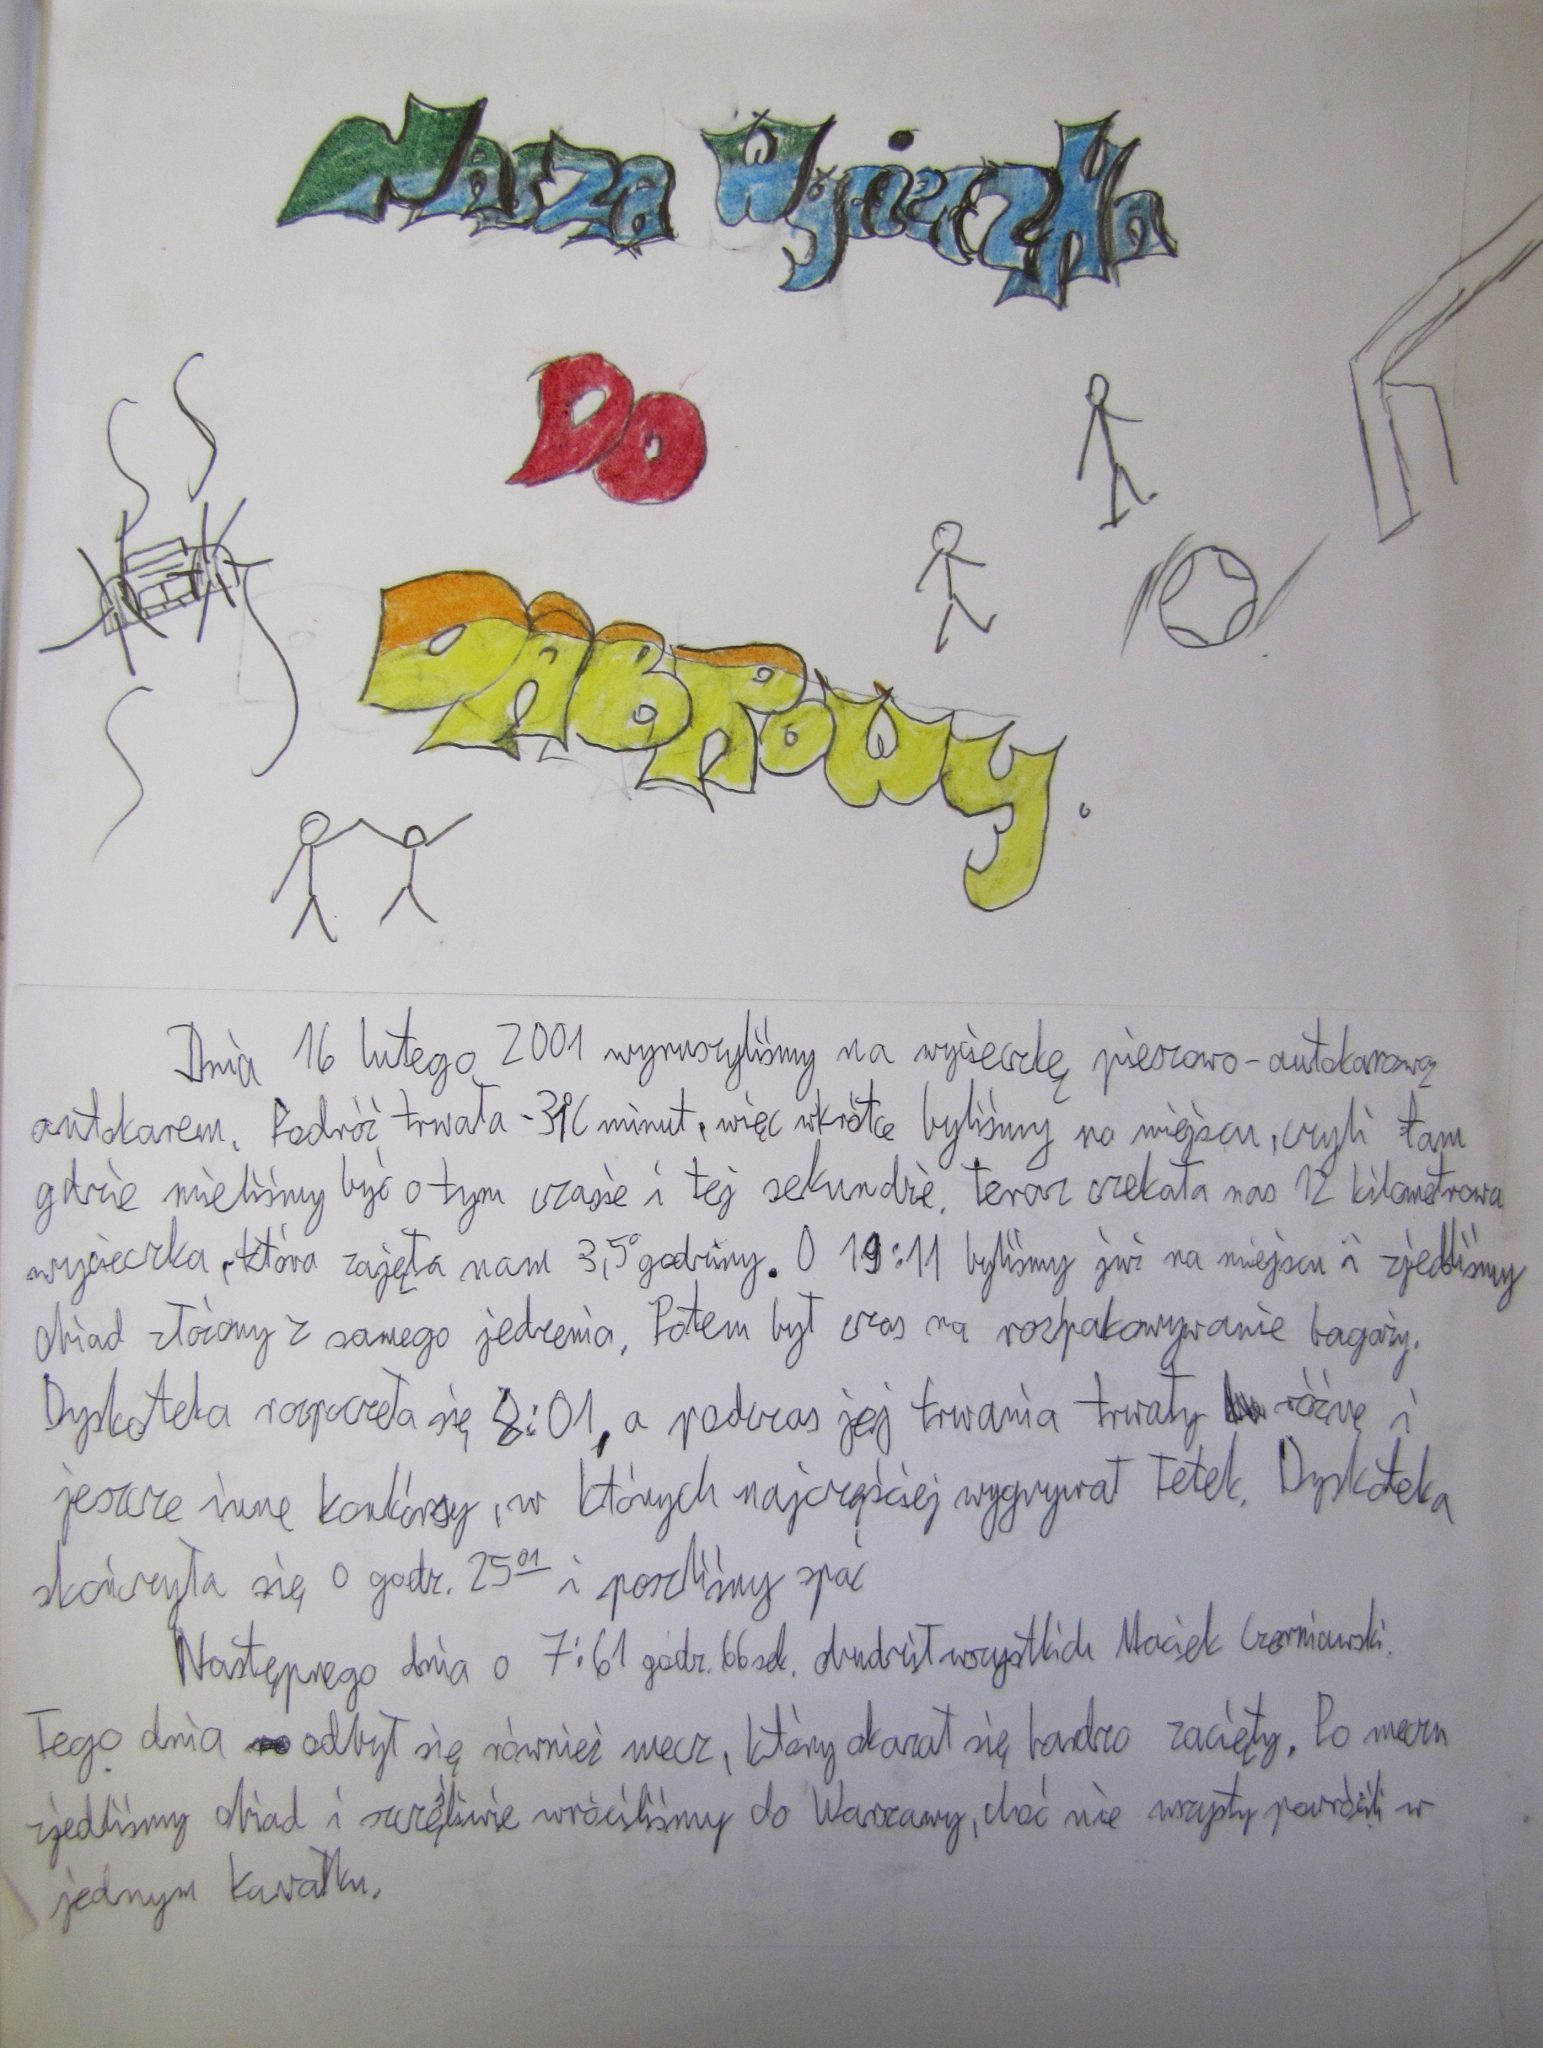 Nasza Wycieczka
Do
Dąbrowy.
Dnia 16 lutego 2001 wyruszyliśmy na wycieczkę pieszowo-autokarową
autokarem. Podróż trwała minut, więc wkrótce byliśmy na miejscu, czyli tam
gdzie mieliśmy być o tym czasie i tej sekundzie. Teraz czekała nas 12 kilometrowa
wycieczka, która zajęła nam 3,5° godziny. O 19:11 byliśmy już na miejscu i zjedliśmy
obiad złożony z samego jedzenia. Potem był czas na rozpakowywanie bagaży.
Dyskoteka rozpoczeła się 8:01, a podczas jej trwania trwały różne i
jeszcze inne konkórsy, w których najczęściej wygrywał Tetek. Dyskoteka
skończyła się o godz. 25 01 i poszliśmy spać
Następnego dnia o 7:61 godz. 66 sek. obudził wszystkich Maciek Czerniawski.
Tego dnia odbył się również mecz, który okazał się bardzo zacięty. Po meczu
zjedliśmy obiad i szczęśliwie wróciliśmy do Warszawy, choć nie wszysty powrócili w
jednym kawałku.